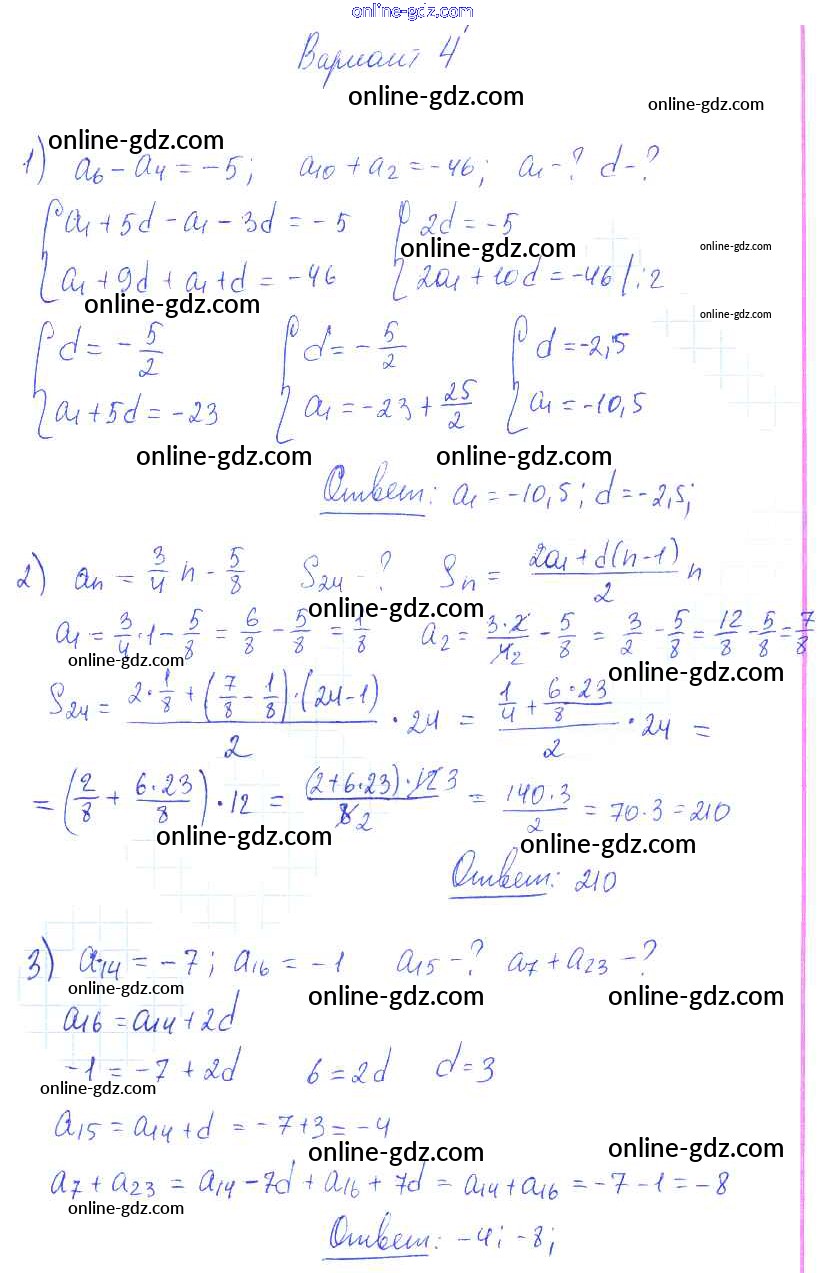 online-gdz.com
Вариант 4
online-gdz.com online-gdz.com
online-gdz.com
1) a₆ - a₄ = -5; a₁₀ + a₂ = -46; a₁ - ? d - ?
{ a₁ + 5d - a₁ - 3d = -5 { 2d = -5
online-gdz.com online-gdz.com
{ a₁ + 9d + a₁ + d = -46 { 2a₁ + 10d = -46 |:2
online-gdz.com online-gdz.com
{ d = -5/2 { d = -5/2 { d = -2,5
{ a₁ + 5d = -23 { a₁ = -23 + 25/2 { a₁ = -10,5
online-gdz.com online-gdz.com
Ответ: a₁ = -10,5; d = -2,5;
2) aₙ = 3/4 n - 5/8 S₂₄ - ? Sₙ = (2a₁ + d(n-1))/2 n
online-gdz.com
a₁ = 3/4 · 1 - 5/8 = 6/8 - 5/8 = 1/8 a₂ = 3·2/4 2 - 5/8 = 3/2 - 5/8 = 12/8 - 5/8 = 7/8
online-gdz.com online-gdz.com
S₂₄ = (2 · 1/8 + (7/8 - 1/8) · (24-1))/2 · 24 = (1/4 + 6·23/8)/2 · 24 =
= (2/8 + 6·23/8) · 12 = (2+6·23)·12 3/8 2 = 140·3/2 = 70·3 = 210
online-gdz.com online-gdz.com
Ответ: 210
3) a₁₄ = -7; a₁₆ = -1 a₁₅ - ? a₇ + a₂₃ - ?
online-gdz.com online-gdz.com online-gdz.com
a₁₆ = a₁₄ + 2d
-1 = -7 + 2d 6 = 2d d = 3
online-gdz.com
a₁₅ = a₁₄ + d = -7 + 3 = -4
online-gdz.com online-gdz.com
a₇ + a₂₃ = a₁₄ - 7d + a₁₆ + 7d = a₁₄ + a₁₆ = -7 - 1 = -8
online-gdz.com
Ответ: -4; -8;